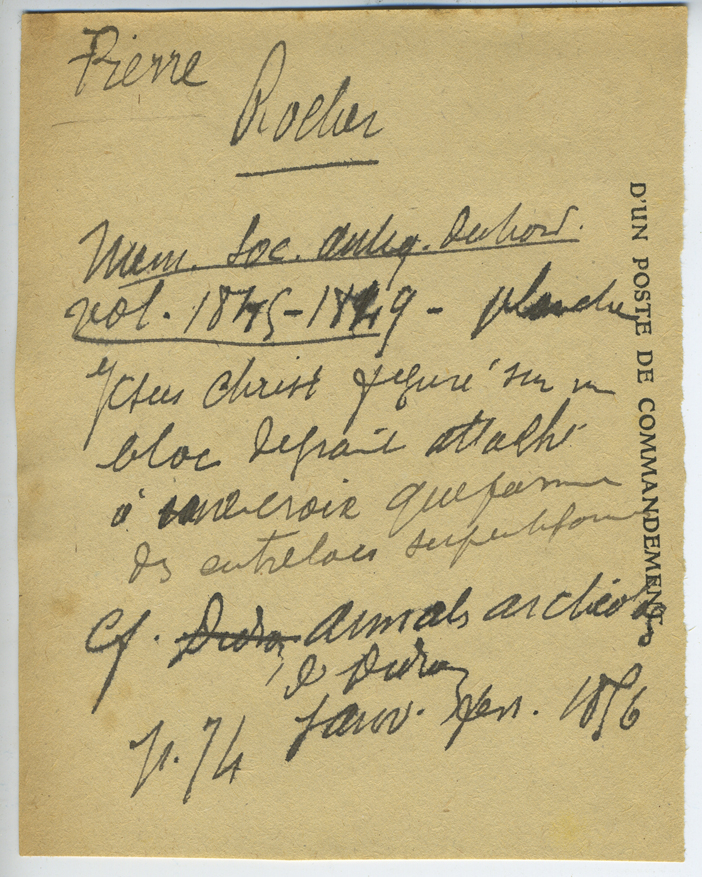 Pierre
Rocher
Mem. Soc. antiq. du Nord.
vol. 1845-1849 - planche
Jesus Christ figuré sur un
bloc de granit attaché
à une croix que forme
des entrelacs serpentiforme
Cf. Didron annales archéolog
de Didron
p. 74 Janv. fevr. 1856
D'UN POSTE DE COMMANDEMENT